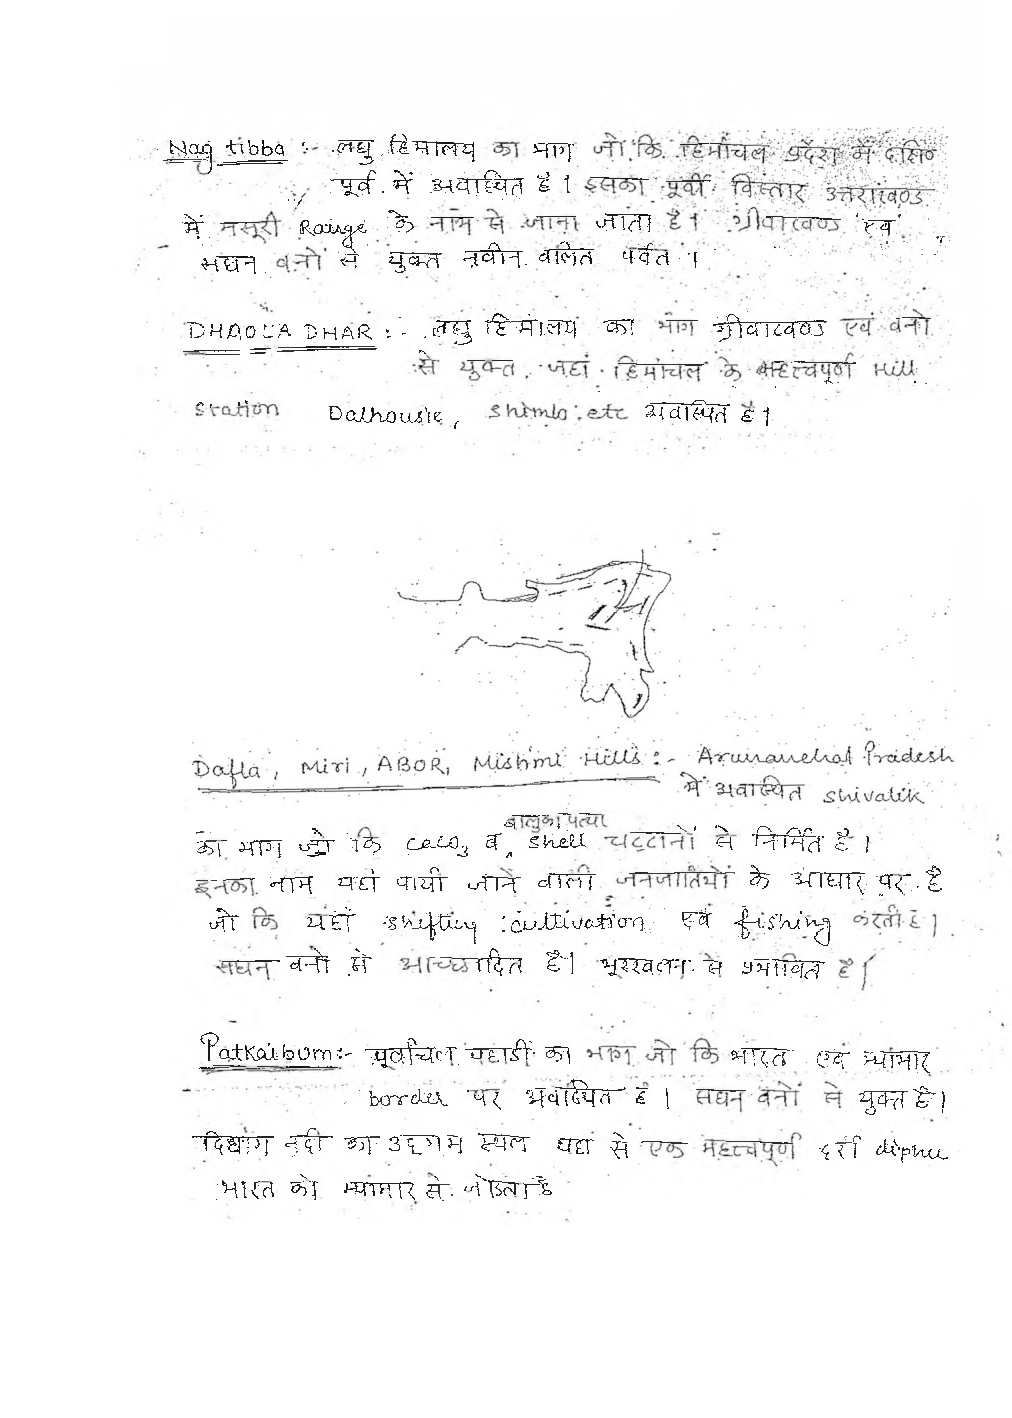 Nag tibba :- लघु हिमालय का भाग जो कि हिमांचल प्रदेश में दक्षि०
पूर्व में अवस्थित है। इसका पूर्वी विस्तार उत्तराखण्ड
में मसूरी Range के नाम से जाना जाता है। ग्रीवाखण्ड एवं
सघन वनों से युक्त नवीन वलित पर्वत।
DHAOLA DHAR :- लघु हिमालय का भाग ग्रीवाखण्ड एवं वनो
से युक्त जहां हिमांचल के महत्त्वपूर्ण Hill
Station Dalhousie, Shimla etc अवस्थित है।
Dafla, Miri, ABOR, Mishmi Hills :- Arunanchal Pradesh
में अवस्थित Shivalik
बालुका पत्थर
का भाग जो कि CaCO3 व shell चट्टानों से निर्मित है।
इनका नाम यहां पायी जाने वाली जनजातियों के आधार पर है
जो कि यहाँ shifting cultivation एवं fishing करती है।
सघन वनो से आच्छादित है। भूस्खलन से प्रभावित है।
Patkaibum:- पूर्वांचल पहाडी का भाग जो कि भारत एवं म्यांमार
border पर अवस्थित है। सघन वनों से युक्त है।
दिहांग नदी का उद्गम स्थल यहां से एक महत्त्वपूर्ण दर्रा diphu
भारत को म्यांमार से जोडता है